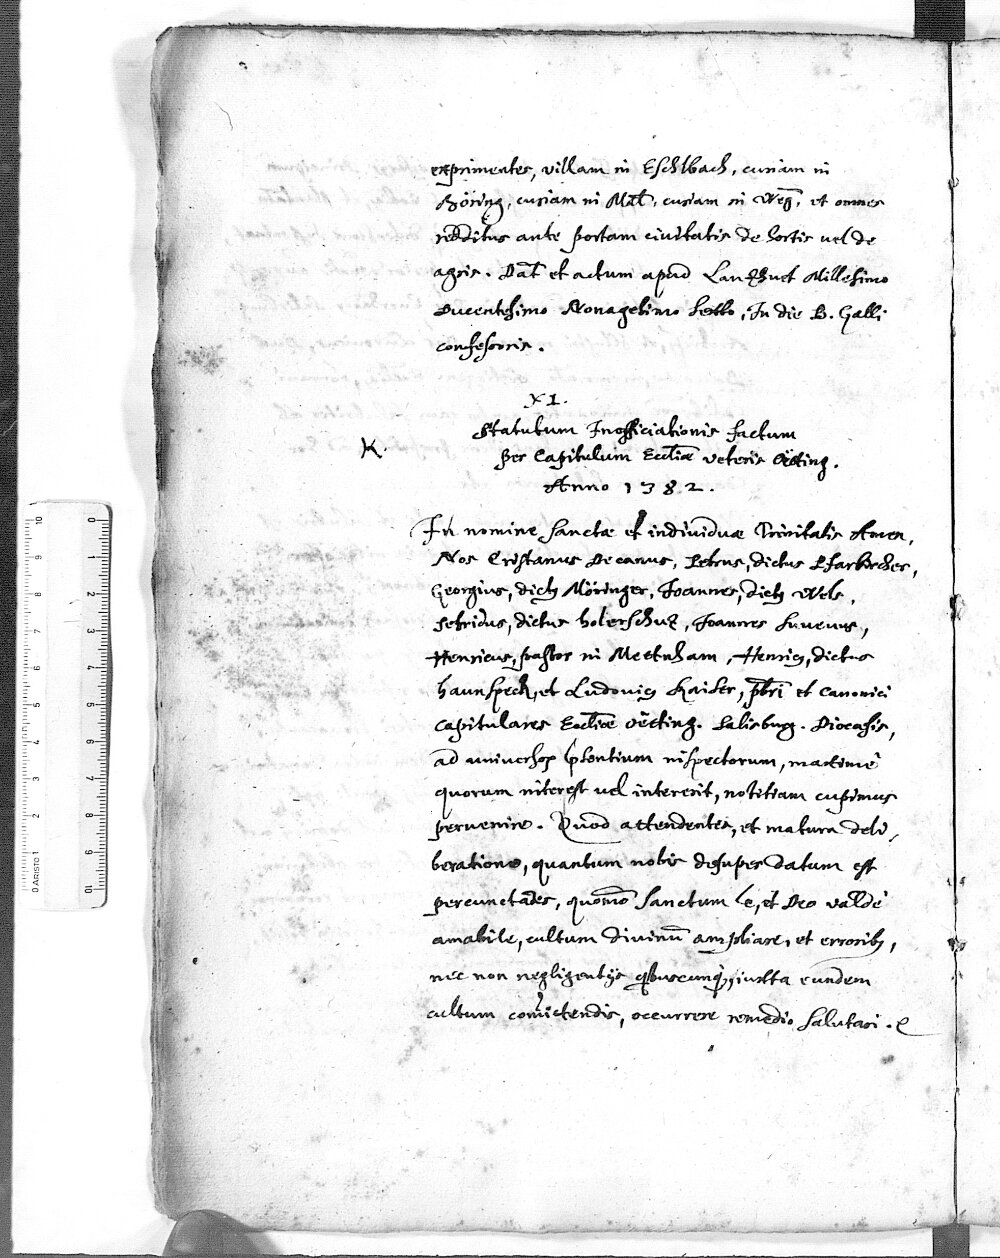 exprimentes, villam in Eschlbach, curiam in
Böring, curiam in Mäl, curiam in Weg, et omnes
redditus ante portam civitatis de hortis vel de
agris. Dat et actum apud Lantzhuet Millesimo
Ducentesimo Nonagesimo Sexto, In die B. Galli
confessoris.
XI.
Statutum Inofficiationis factum
K.
per Capitulum Eccliae veteris Oeting.
Anno 1382.
In nomine Sanctae et individuae Trinitatis Amen,
Nos Cristanus Decanus, Petrus, dictus Pfarkircher,
Georgius, dictus Möringer, Joannes, dictus Wels,
Sebridus, dictus holerschuz, Joannes Iuvenis,
Henricus, pastor in Mectnham, Henricus, dictus
haunspeckh, et Ludovicus Kaiser, pbri et Canonici
Capitulares Eccliae Oeting. Salisburg. Diocesis,
ad universorum pñtium inspectorum, maximè
quorum interest vel intererit, notitiam cupimus
pervenire. Quod attendentes, et matura deli-
beratione, quantum nobis desuper datum est
percunctantes, quomo Sanctum sit, et Deo valde
amabile, cultum divinũ ampliare, et erroribus,
nec non negligentijs quibuscunque, iuxta eundem
cultum committendis, occurrere remedio salutari.